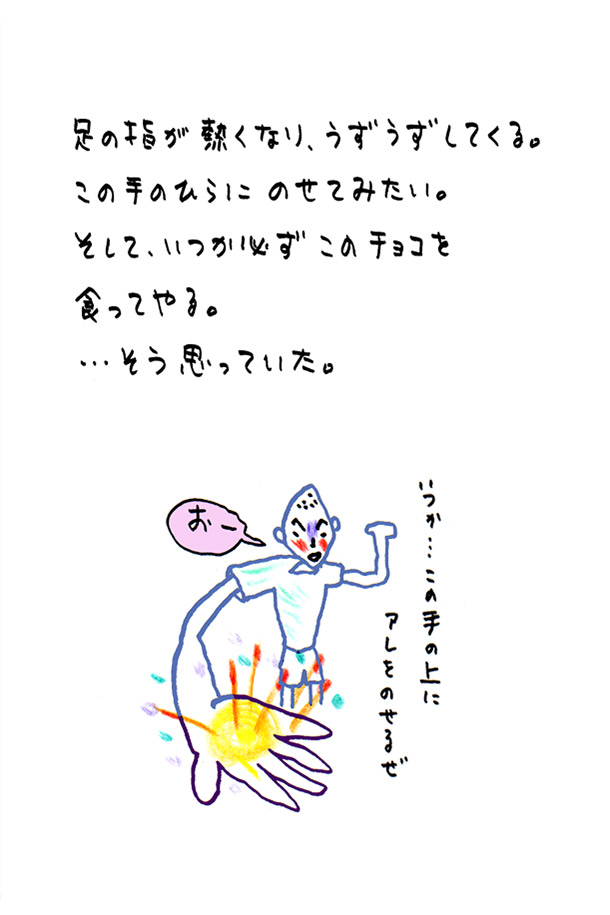 足の指が熱くなり、うずうずしてくる。
この手のひらにのせてみたい。
そして、いつか必ずこのチョコを
食ってやる。
…そう思っていた。
おー
いつか…この手の上に
アレをのせるぜ